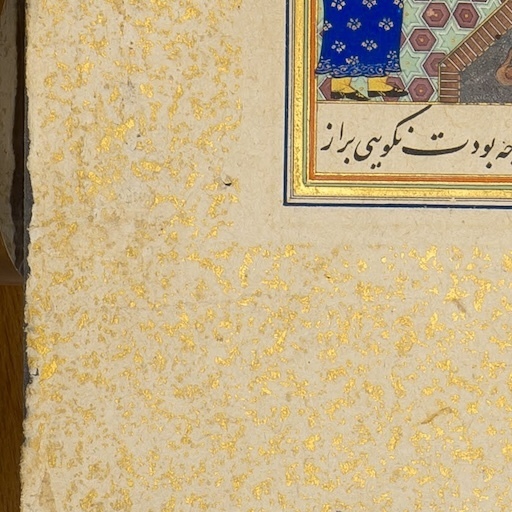 بودت نکویی براز